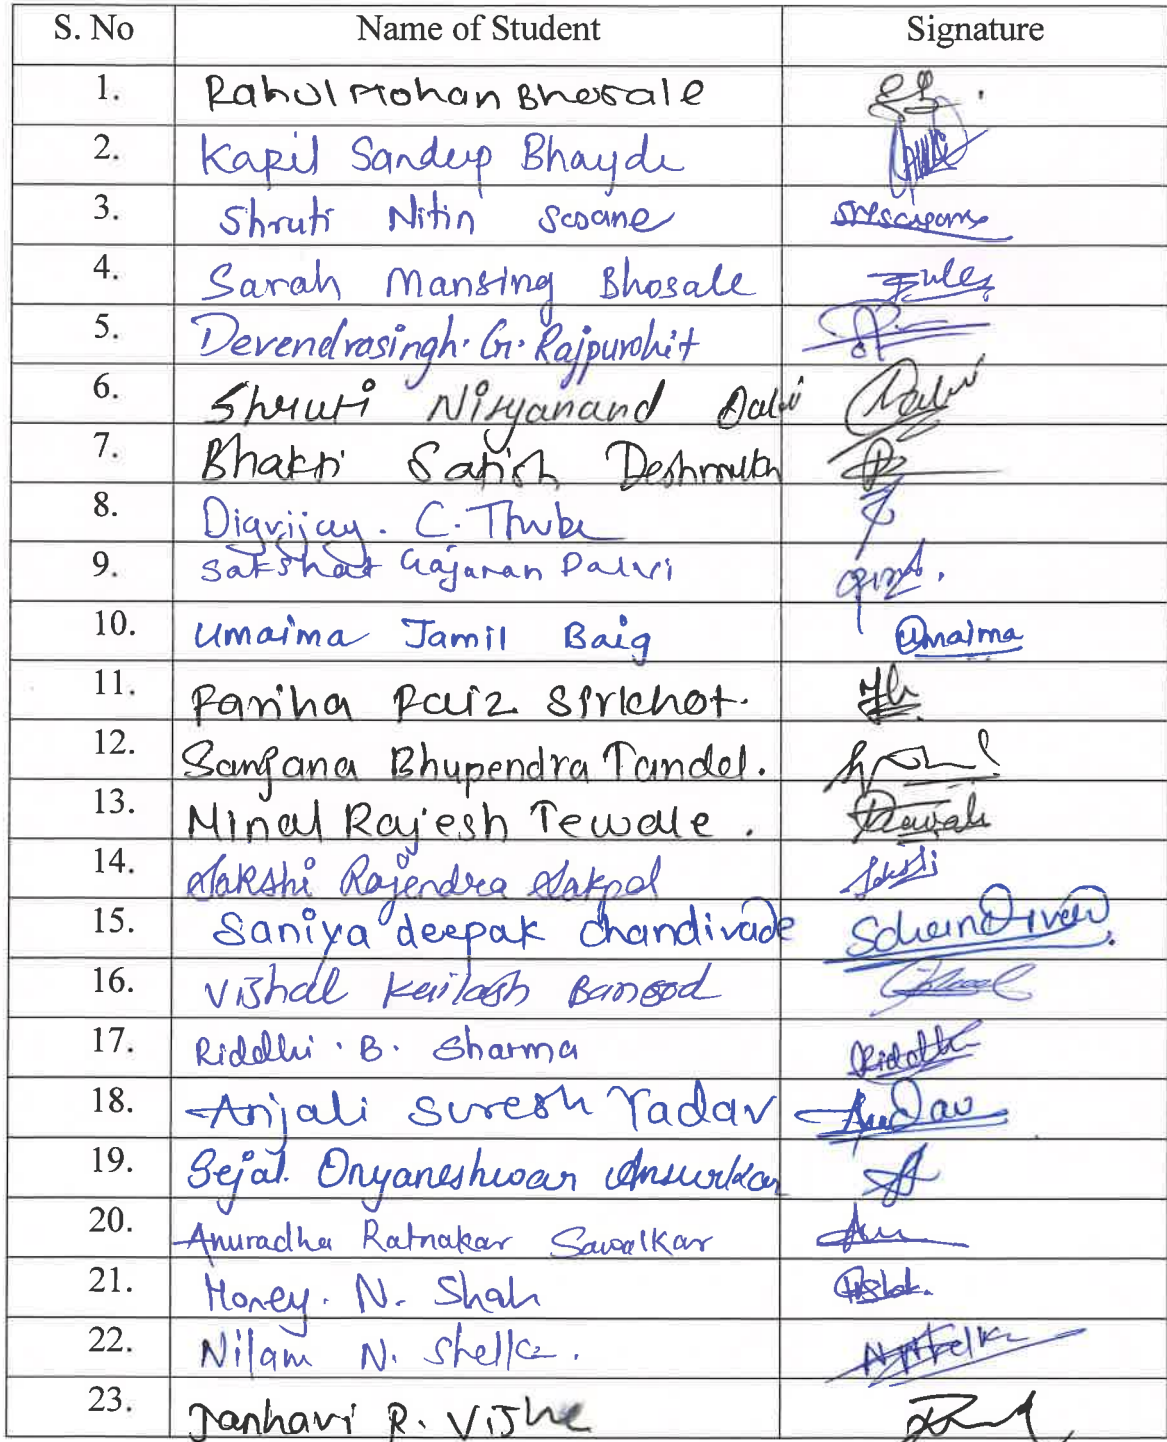 S. No Name of Student Signature
1. Rahul Mohan Bhosale
2. Kapil Sandeep Bhayde
3. Shruti Nitin Sasane
4. Sarah Mansing Bhosale
5. Devendrasingh. G. Rajpurohit
6. Shruti Nityanand Dalvi Dalvi
7. Bhakti Satish Deshmukh
8. Digvijay. C. Thube
9. Sakshat Gajanan Dalvi
10. Umaima Jamil Baig Umaima
11. Fariha Faiz Sirkhot.
12. Sanjana Bhupendra Tandel.
13. Minal Rajesh Tewale. Tewale
14. Sakshi Rajendra Sakpal Sakshi
15. Saniya deepak chandivade
16. Vishal Kailash Bansod
17. Riddhi. B. Sharma Riddhi
18. Anjali Suresh Yadav
19. Sejal. Dnyaneshwar Ansurkar
20. Anuradha Ratnakar Sawalkar Anu
21. Honey. N. Shah
22. Nilam N. Shelke. N.N.Shelke
23. Janhavi R. Vishe